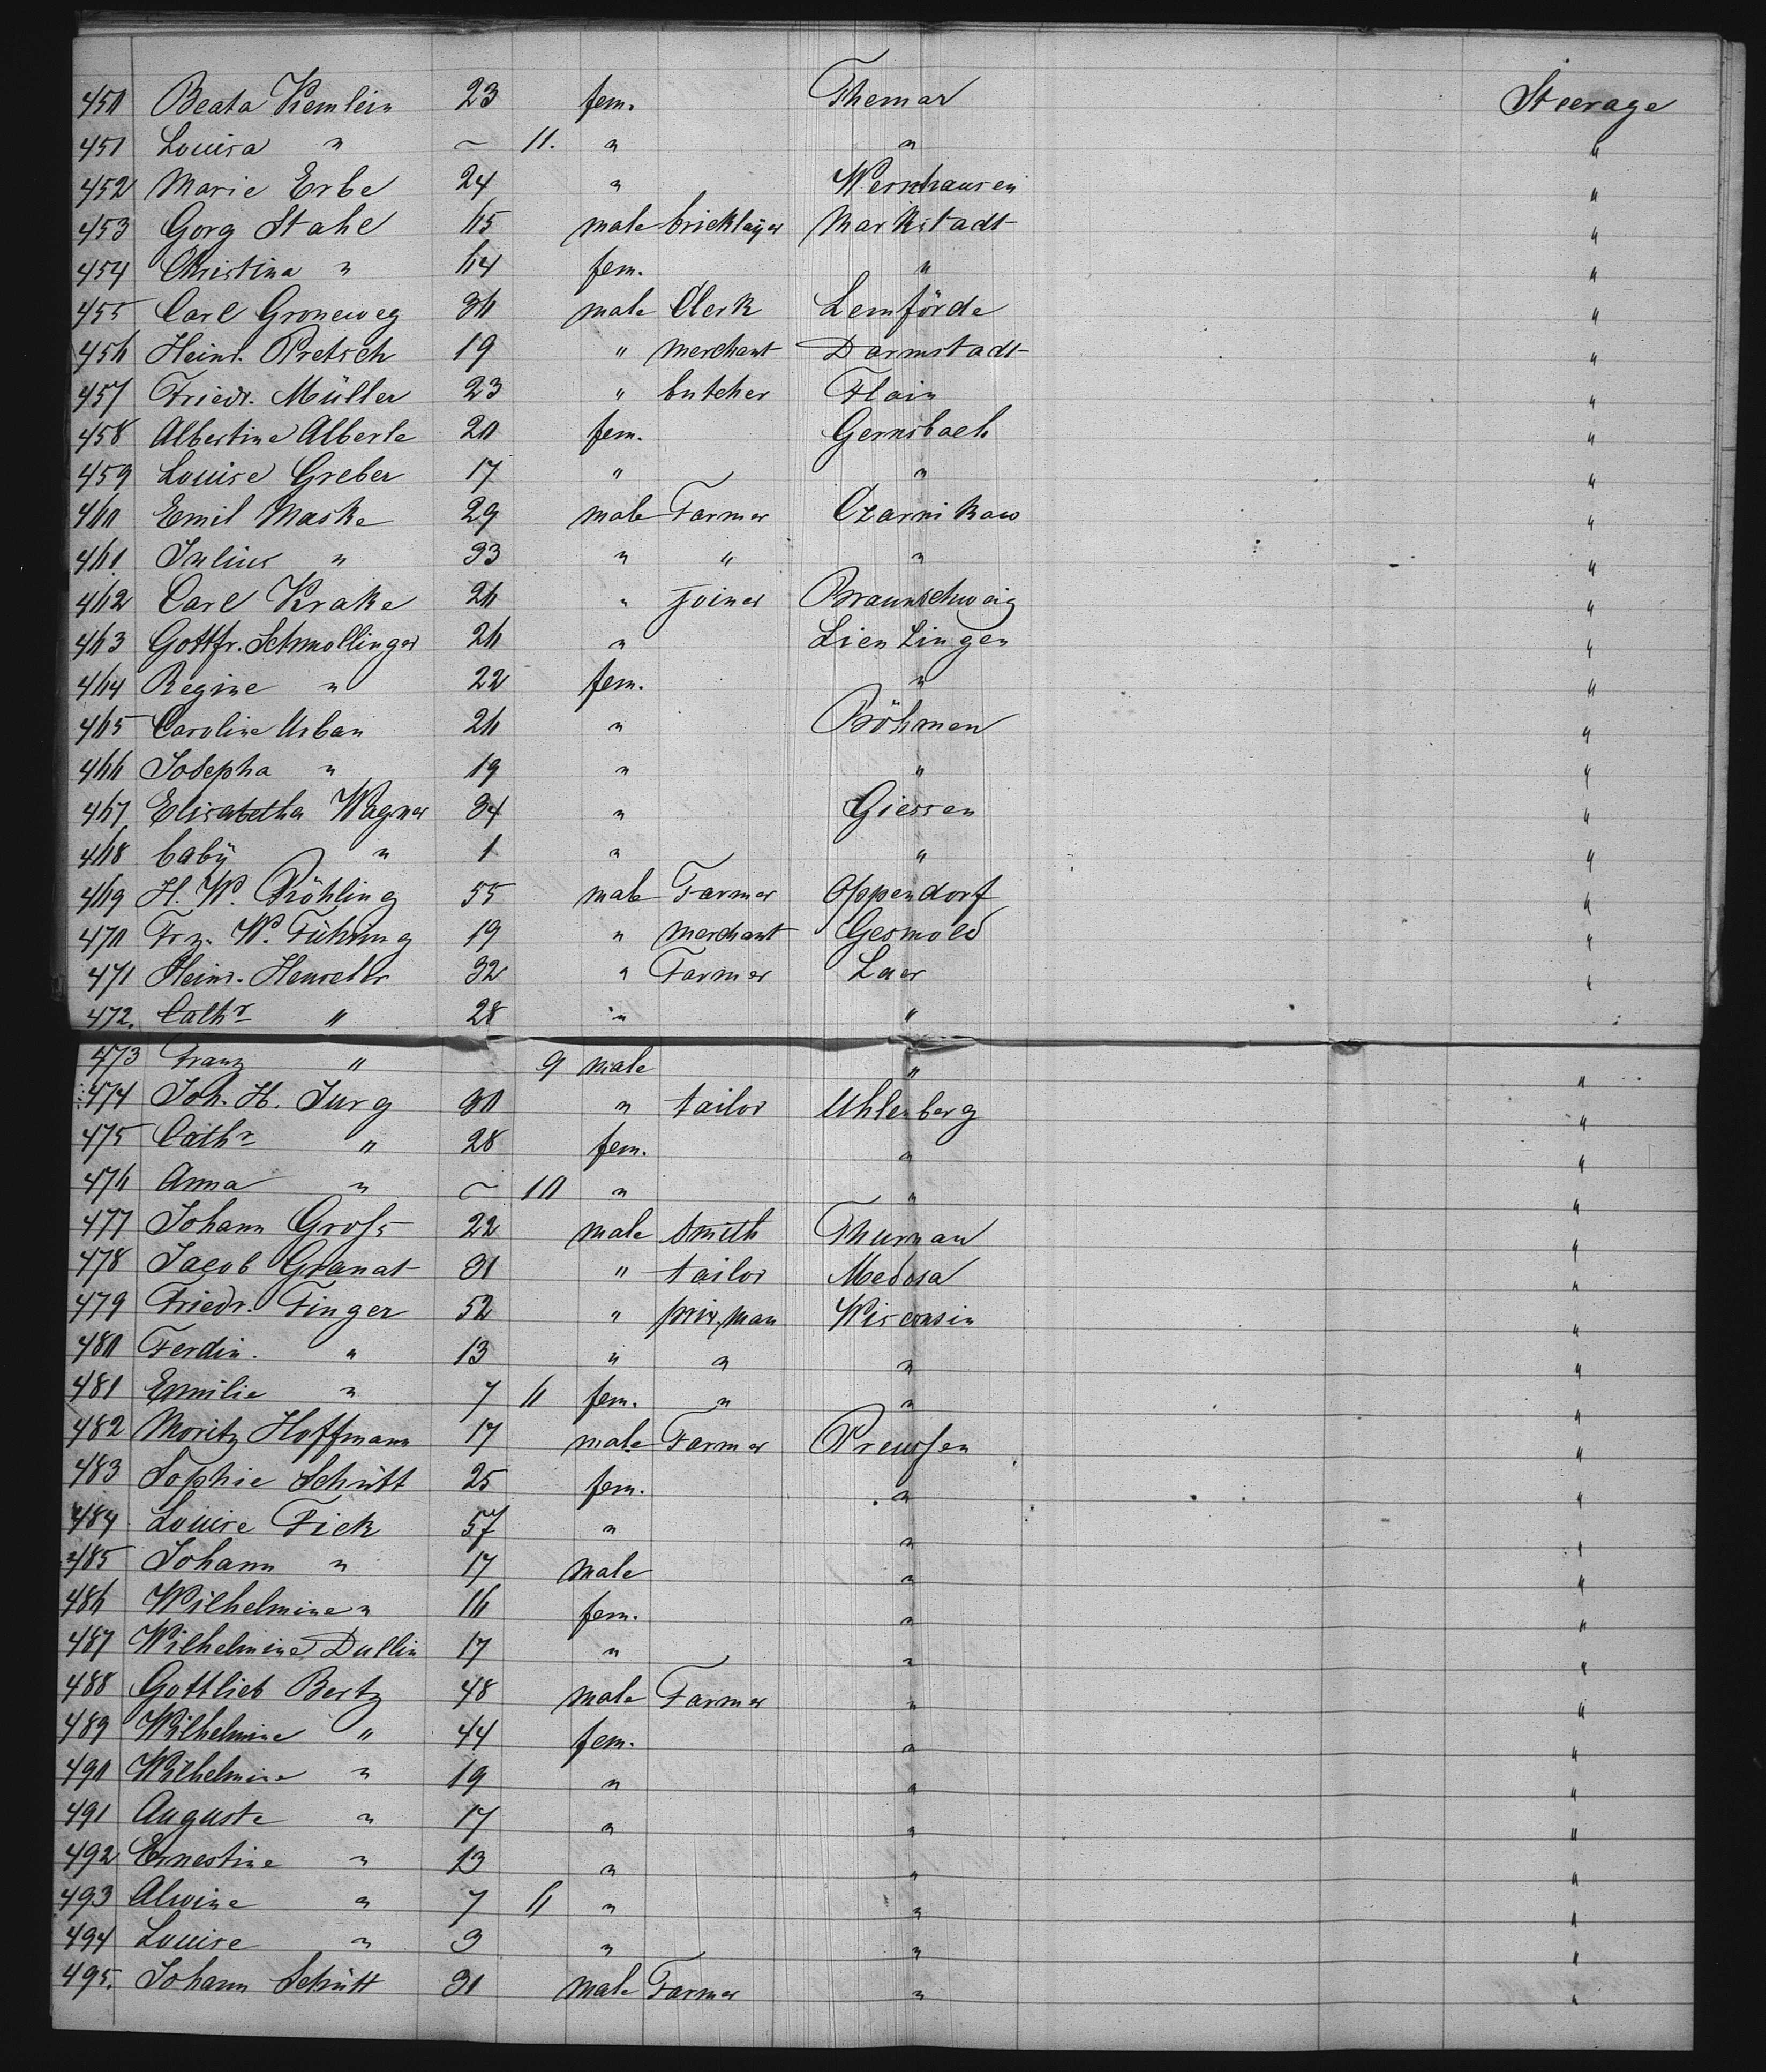 450 Beata Kemlein 23 fem. Themar Steerage
451 Louisa " ~ 11. " " "
452 Marie Erbe 24 " Wernhausen "
453 Gorg Stahl 65 male bricklayer Markstadt "
454 Christina " 64 fem. " "
455 Carl Groneweg 36 male Clerk Lemförde "
456 Heinr. Pretsch 19 " merchant Darmstadt "
457 Friedr. Müller 23 " butcher Flain "
458 Albertine Alberle 20 fem. Gernsbach "
459 Louise Greber 17 " " "
460 Emil Maske 29 male Farmer Czarnikow "
461 Julius " 33 " " " "
462 Carl Krake 26 " joiner Braunschweig "
463 Gottfr. Schmollinger 26 " Lienzingen "
464 Regine " 22 fem. " "
465 Caroline Urban 26 " Böhmen "
466 Josepha " 19 " " "
467 Elisabetha Wagner 34 " Giessen "
468 baby " 1 " " "
469 H. W. Röhling 55 male Farmer Oppendorf "
470 Frz. W. Führing 19 " merchant Gesmold "
471 Heinr. 32 " Farmer Laer "
472. Cathr " 28 " "
473 Franz " 9 male " "
474 Joh. H. Jurg 30 " tailor Uhlenberg "
475 Cathr " 28 fem. " "
476 Anna " ~ 10 " " "
477 Johann Groſs 22 male smith Thurnau "
478 Jacob Granat 31 " tailor Medosa "
479 Friedr. Finger 52 " priv. man Wisconsin "
480 Ferdin. " 13 " " " "
481 Emilie " 7 6 fem. " " "
482 Moritz Hoffmann 17 male Farmer Preuſsen "
483 Sophie Schütt 25 fem. " "
484 Louise Fick 57 " " "
485 Johann " 17 male " "
486 Wilhelmine " 16 fem. " "
487 Wilhelmine Dullin 17 " " "
488 Gottlieb Bertz 48 male Farmer " "
489 Wilhelmine " 44 fem. " "
490 Wilhelmine " 19 " " "
491 Auguste " 17 " " "
492 Ernestine " 13 " " "
493 Alwine " 7 6 " " "
494 Louise " 3 " " "
495. Johann Schütt 31 male Farmer " "